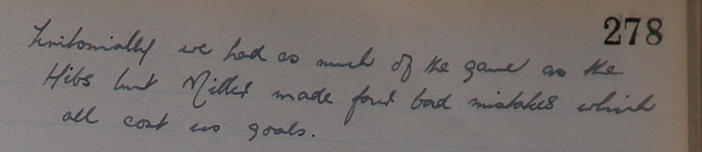 278
Territorially we had as much of the game as the
Hibs but Miller made four bad mistakes which
all cost us goals.